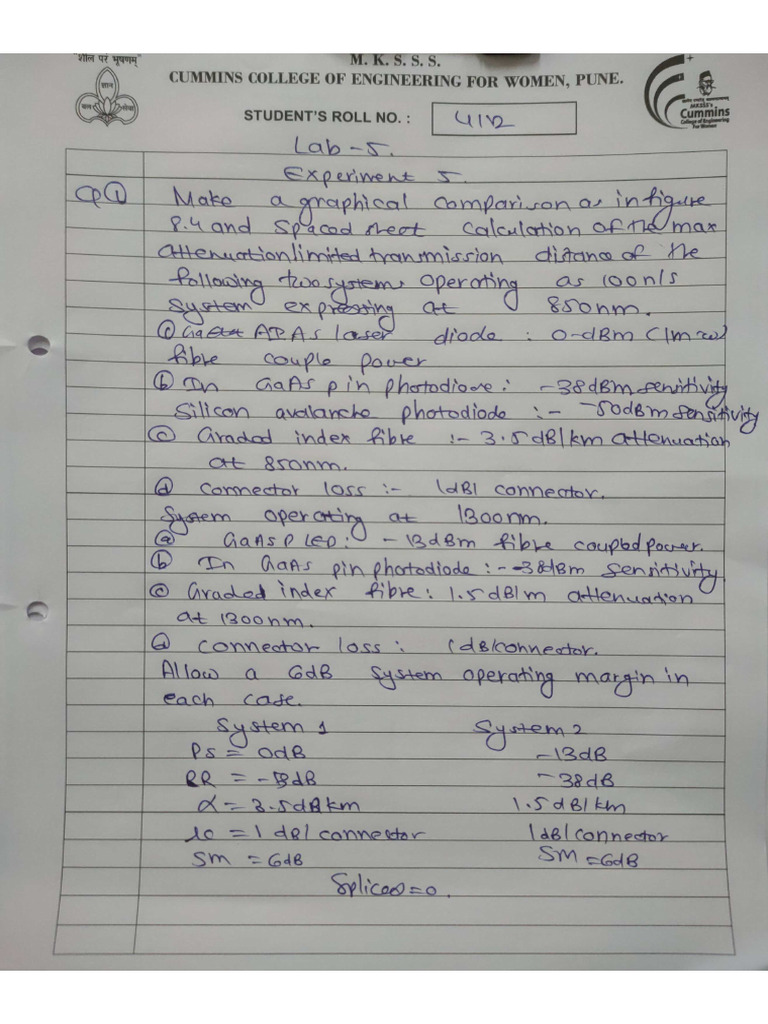 "शील परं भूषणम्"
ज्ञान
बल
सेवा
M. K. S. S. S.
CUMMINS COLLEGE OF ENGINEERING FOR WOMEN, PUNE.
STUDENT'S ROLL NO. : 4112
MKSSS's
Cummins
College of Engineering
For Women
Lab - 5.
Experiment 5.
Q① Make a graphical comparison as in figure
8.4 and Spaced sheet calculation of the max
attenuation limited transmission distance of the
following two systems operating as 100 n/s
System expressing at 850nm.
laser diode : 0-dBm (1mw)
fibre couple power
ⓑ In GaAs pin photodiode : -38dBm sensitivity
Silicon avalanche photodiode :- -50dBm sensitivity
ⓒ Graded index fibre :- 3.5dB/km attenuation
at 850nm.
ⓓ connector loss :- 1dB/ connector.
System operating at 1300nm.
ⓐ GaAsP LED: -13dBm fibre coupled power.
ⓑ In GaAs pin photodiode :- -38dBm sensitivity
ⓒ Graded index fibre : 1.5dB/m attenuation
at 1300nm.
ⓓ connector loss : 1dB/connector.
Allow a 6dB system operating margin in
each case.
System 1 System 2
Ps = 0dB -13dB
-38dB
α = 3.5dB/km 1.5dB/km
lc = 1 dB/ connector 1dB/connector
SM = 6dB SM = 6dB
Splices = 0.